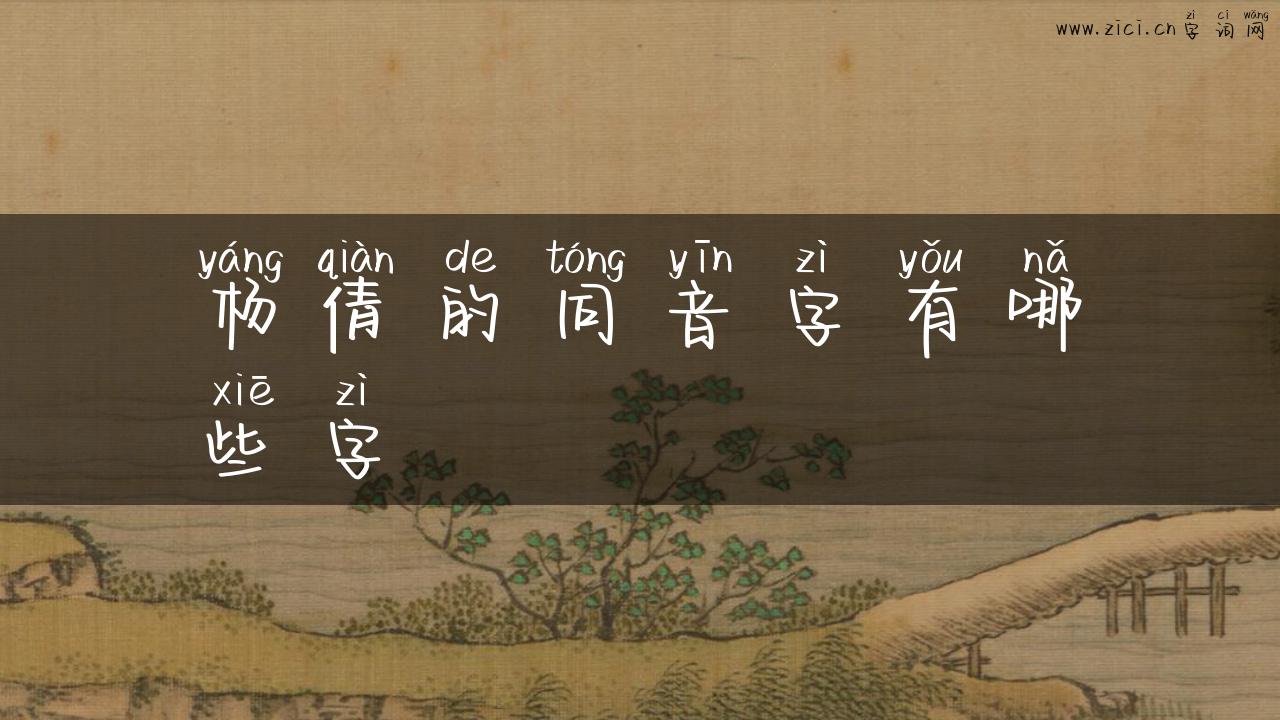 zì cí wǎng
www.zici.cn 字词网
yáng qiàn de tóng yīn zì yǒu nǎ
杨倩的同音字有哪
xiē zì
些字